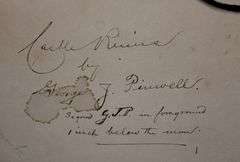 Castle Ruins
by
George J. Pinwell.
Signed G.J.P. in foreground
1 inch below the man.